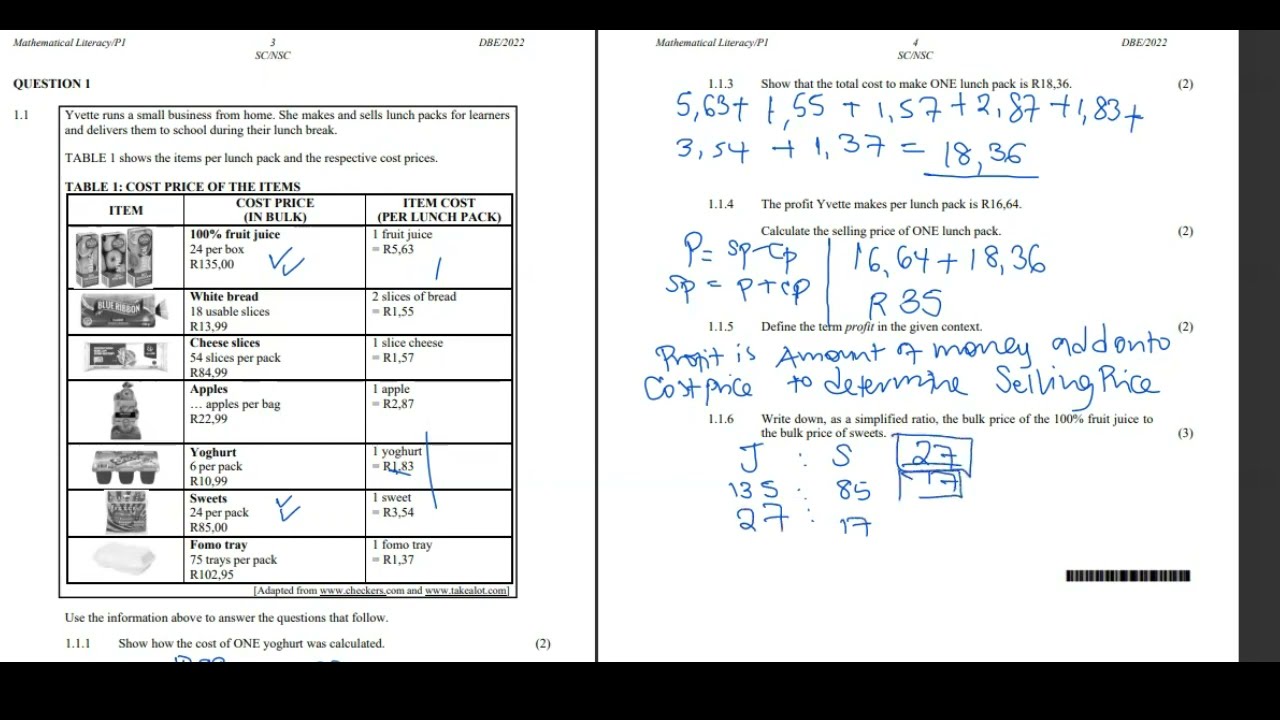 Mathematical Literacy/P1 3 DBE/2022
SC/NSC
QUESTION 1
1.1 Yvette runs a small business from home. She makes and sells lunch packs for learners
and delivers them to school during their lunch break.
TABLE 1 shows the items per lunch pack and the respective cost prices.
TABLE 1: COST PRICE OF THE ITEMS
ITEM COST PRICE (IN BULK) ITEM COST (PER LUNCH PACK)
100% fruit juice 1 fruit juice
24 per box = R5,63
R135,00
BLUE RIBBON
White bread 2 slices of bread
18 usable slices = R1,55
R13,99
Cheese slices 1 slice cheese
54 slices per pack = R1,57
R84,99
Apples 1 apple
... apples per bag = R2,87
R22,99
Yoghurt 1 yoghurt
6 per pack = R1,83
R10,99
Sweets 1 sweet
24 per pack = R3,54
R85,00
Fomo tray 1 fomo tray
75 trays per pack = R1,37
R102,95
[Adapted from www.checkers.com and www.takealot.com]
Use the information above to answer the questions that follow.
1.1.1 Show how the cost of ONE yoghurt was calculated. (2)
Mathematical Literacy/P1 4 DBE/2022
SC/NSC
1.1.3 Show that the total cost to make ONE lunch pack is R18,36. (2)
5,63+ 1,55 + 1,57 + 2,87 + 1,83 +
3,54 + 1,37 = 18,36
1.1.4 The profit Yvette makes per lunch pack is R16,64.
Calculate the selling price of ONE lunch pack. (2)
P = SP - CP 16,64 + 18,36
SP = P + CP R 35
1.1.5 Define the term profit in the given context. (2)
Profit is Amount of money add onto
Cost price to determine Selling Price
1.1.6 Write down, as a simplified ratio, the bulk price of the 100% fruit juice to
the bulk price of sweets. (3)
J : S 27
135 : 85 17
27 : 17